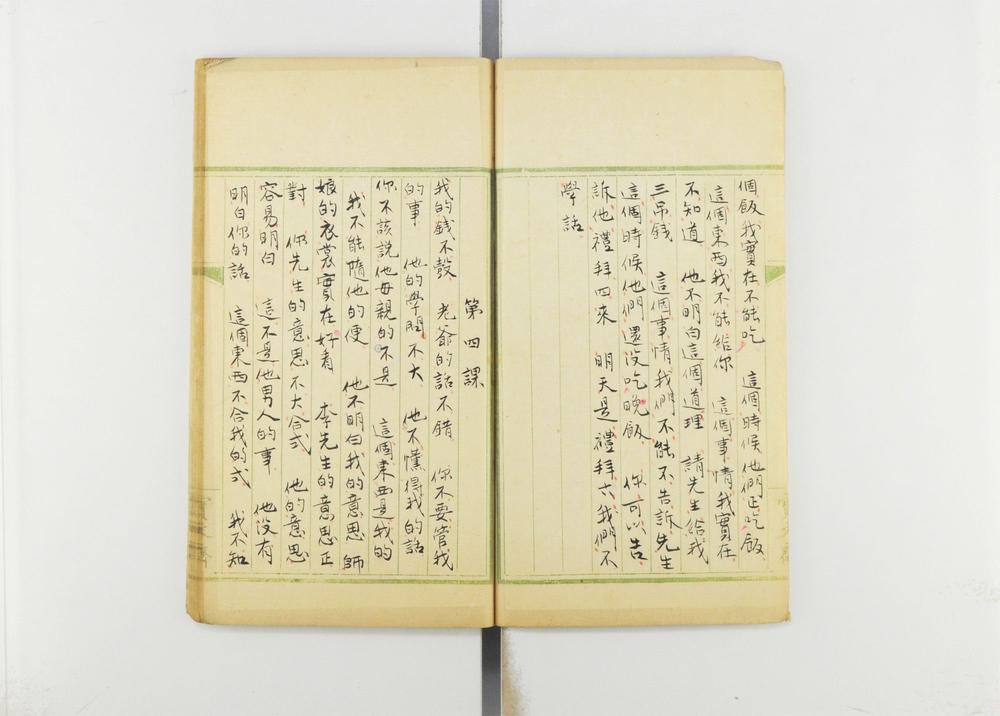 個飯我實在不能吃　這個時候他們正吃飯
這個東西我不能給你　這個事情我實在
不知道　他不明白這個道理　請先生給我
三吊錢　這個事情我們不能不告訴先生
這個時候他們還没吃晚飯　你可以告
訴他禮拜四來　明天是禮拜六我們不
學話
第四課
我的錢不彀　老爺的話不錯　你不要管我
的事　他的學問不大　他不懂得我的話
你不該說他母親的不是　這個東西是我的
我不能隨他的便　他不明白我的意思　師
娘的衣裳實在好看　李先生的意思正
對　你先生的意思不大合式　他的意思
容易明白　這不是他男人的事　他没有
明白你的話　這個東西不合我的式　我不知